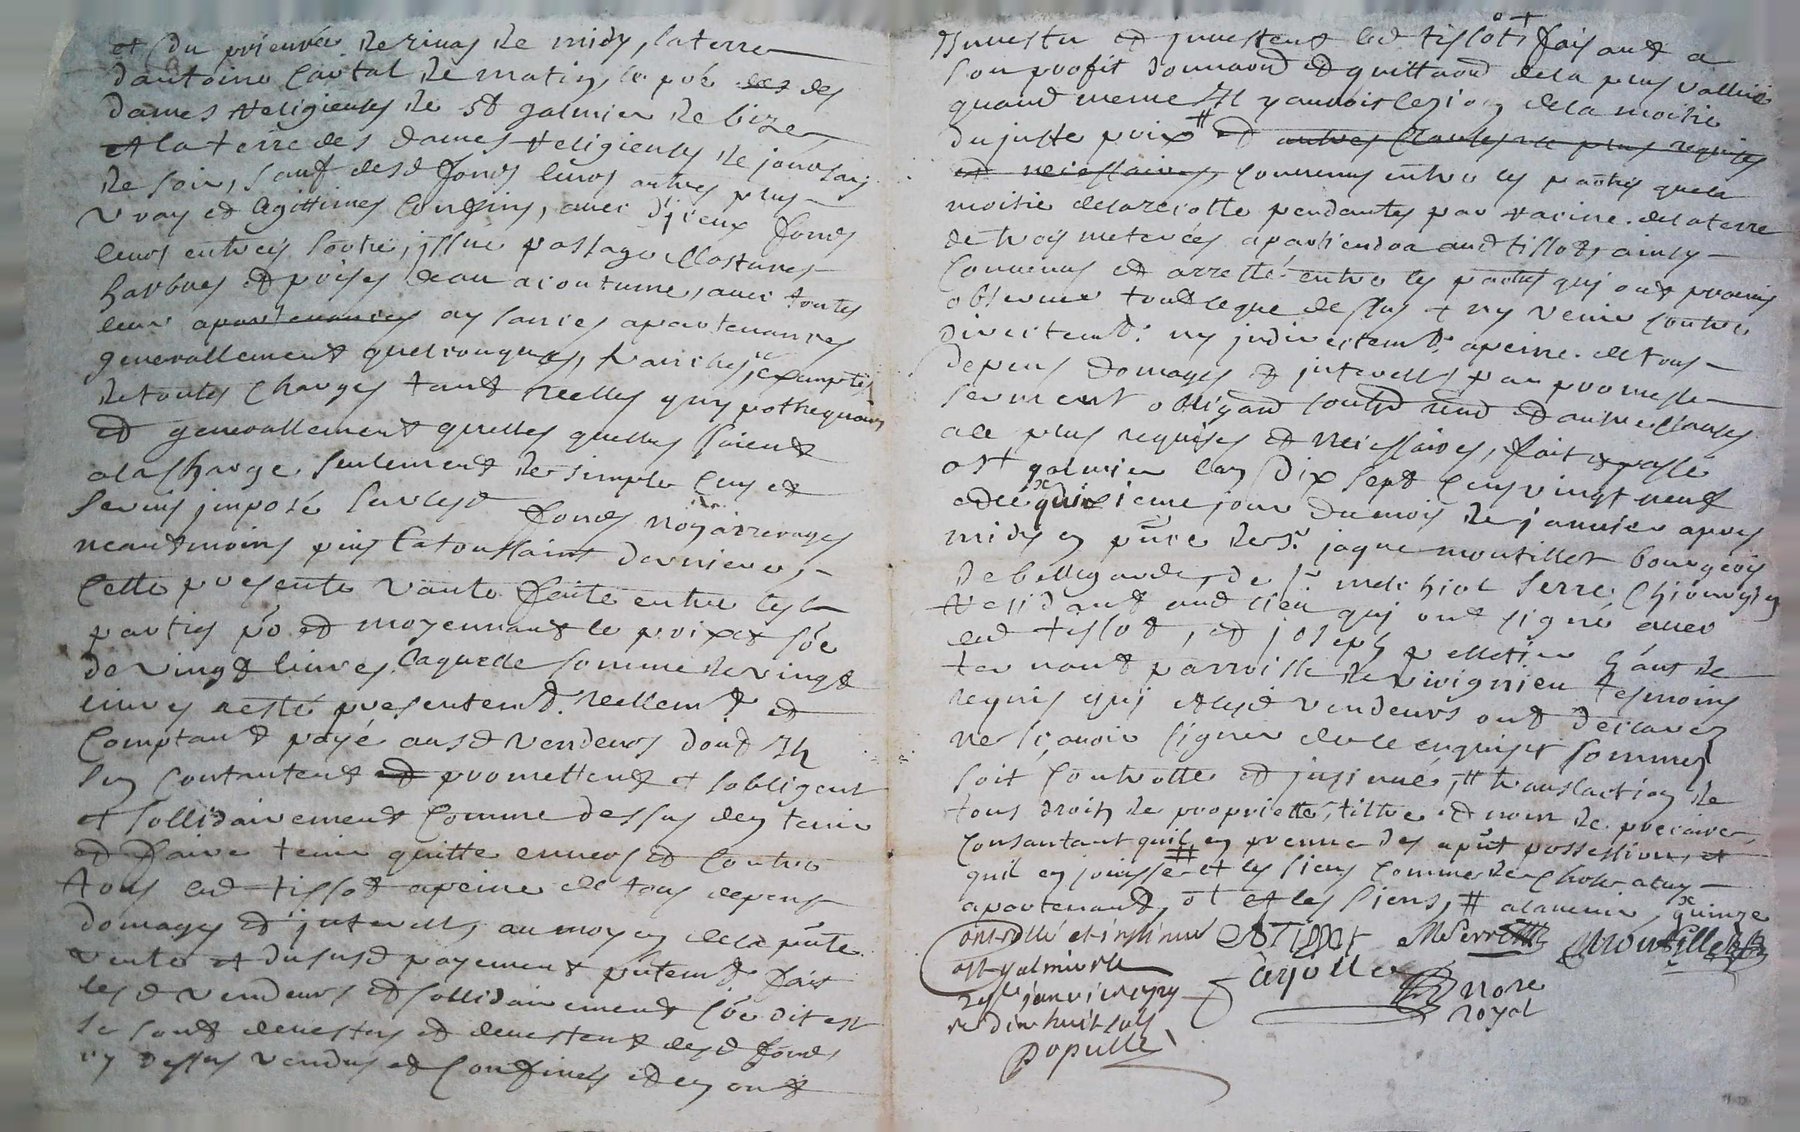 et du prieuré de rivas de midy, la terre
dantoine cartal de matin, le pré des des
dames religieuses de st galmier de bize
et la terre des dames religieuses de jourssay
de soir, sauf desd fonds leurs autres plus
vrays et légittimes confins, avec d'iceux fonds
leurs entrées sortie, issue passage
harbres et prises deau acoutume, avec toutes
leur apartenances aysances apartenances
generallement quelconques, franches, exemptés
de toutes charges tant reelles quypothequaires
et generallement quelles quelles soient
a la charge seulement de simple cens et
servis imposé surlesd fonds noy arrerages
neantmoins puis la toussaint derniere,
cette presente vante faite entre lesd
parties po et moyennant le prix et soe
de vingt livres laquelle somme de vingt
livres a esté presentemt. reellemt et
comptant payé ausd vendeurs dont Ils
sen contantent et promettent et sobligent
et sollidairement comme dessus den tenir
et faire tenir quitte envers et contre
tous led tissot apeine de tous depens
domages et interests, au moyen de la pnte
vente et dusus payement pntemt. fait
lesd vendeurs et sollidairement soe dit est
se sont devestus et devestent desd fonds
cy dessus vendus et confinés et en ont
Investu et investent led tissot, faisant a
son profit donnaond et quittaond de la plus vallue
quand meme Il y auroit lezion de la moitie
du juste prix # et autres clauses ace plus requises
et necessaires, convenus entre les parties que la
moitie de la recolte pendantes par racine de la terre
de trois meterées apartiendra aud tissot, ainsy
convenus et arretté entre les parties quj ont promis
observer tout ceque dessus et ny venir contre
directemt. ny indirectemt. apeine de tous
depens domages et interests, par promesse
serment obligaond soubs renond et autres clauses
ace plus requises et necessaires, fait et passé
a st galmier lan dix sept cens vingt neuf
et le quinzieme jour du mois de janvier apres
midy en pnce de sr. jaque montillet bourgeois
de bellegarde, de sr melchiol serre chirurgien
residant aud lieu quj ont signé avec
led tissot, et joseph pelletier hant de
ternant parroisse de rivignieu tesmoins
requis quj et lesd vendeurs ont declarez
ne sçavoir signer de ce enquis et sommes
soit controlle et insinué, # translaction de
tous droits de propriette, tiltre et nom de precaire
consantant quil en prenne des apnt possession, et
quil en jouisse # et les siens comme de chose a luy
apartenant, et les siens, # alavenir, x quinze
controllé et insinué ATissot MSerre Montillet
a st galmier le Fayolle
25e janvier 1729 Nore
r dix huit sols Royal
Populle